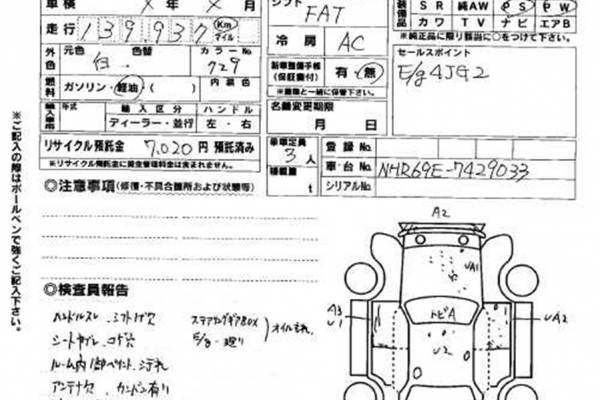 車検 X 年 X 月
シフト FAT
装備品 SR 純AW PS PW
カワ TV ナビ エアB
※純正品に限り該当に○をつけて下さい
走行 139937 Km マイル
冷房 AC
セールスポイント
E/g 4JG2
外色 元色 色替 カラーNo.
白. 729
新車整備手帳(保証書付) 有・無
※画像と一緒に保管下さい。
燃料 ガソリン・軽油・( ) 内装色
名義変更期限
月 日
輸入車 年式 輸入区分 ハンドル
ディーラー・並行 左・右
リサイクル預託金 7,020 円 預託済み
※リサイクル預託金に資金管理料金は含まれません。
乗車定員 3人
積載量 t
登録No.
車・台No. NHR69E-7429033
シリアルNo.
◎注意事項(修復・不具合箇所および状態等)
※ご記入の際はボールペンで強くご記入下さい。
◎検査員報告
ハンドルスレ シフトゲ穴 ステアリングギアBOX オイルもれ
シートサイレ コゲ穴 E/g-廻り
ルーム内 1部ペイント、汚れ
アンテナ欠 カンバン有り
A2
UA1
トビA
A3
U1
U2
UA2